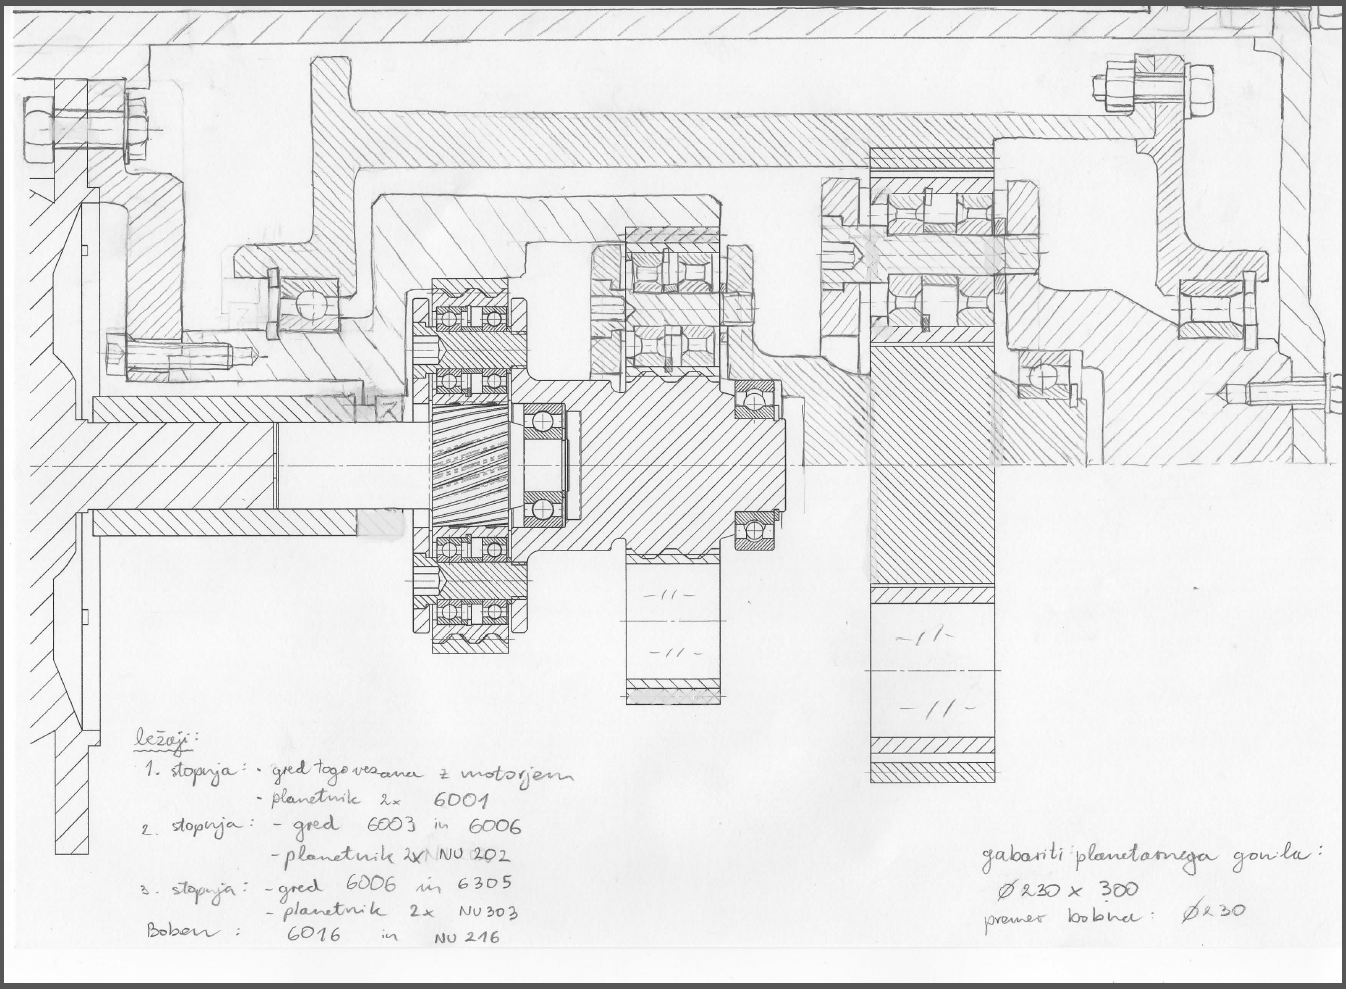 ležaji:
1. stopnja: - gred togo vezana z motorjem
- planetnik 2x 6001
2. stopnja: - gred 6003 in 6006
- planetnik 2x NU 202
3. stopnja: - gred 6006 in 6305
- planetnik 2x NU303
Boben : 6016 in NU 216
gabariti planetarnega gonila:
Ø230 x 300
premer bobna: Ø230